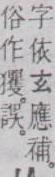 字依玄應補。
俗作玃。誤。